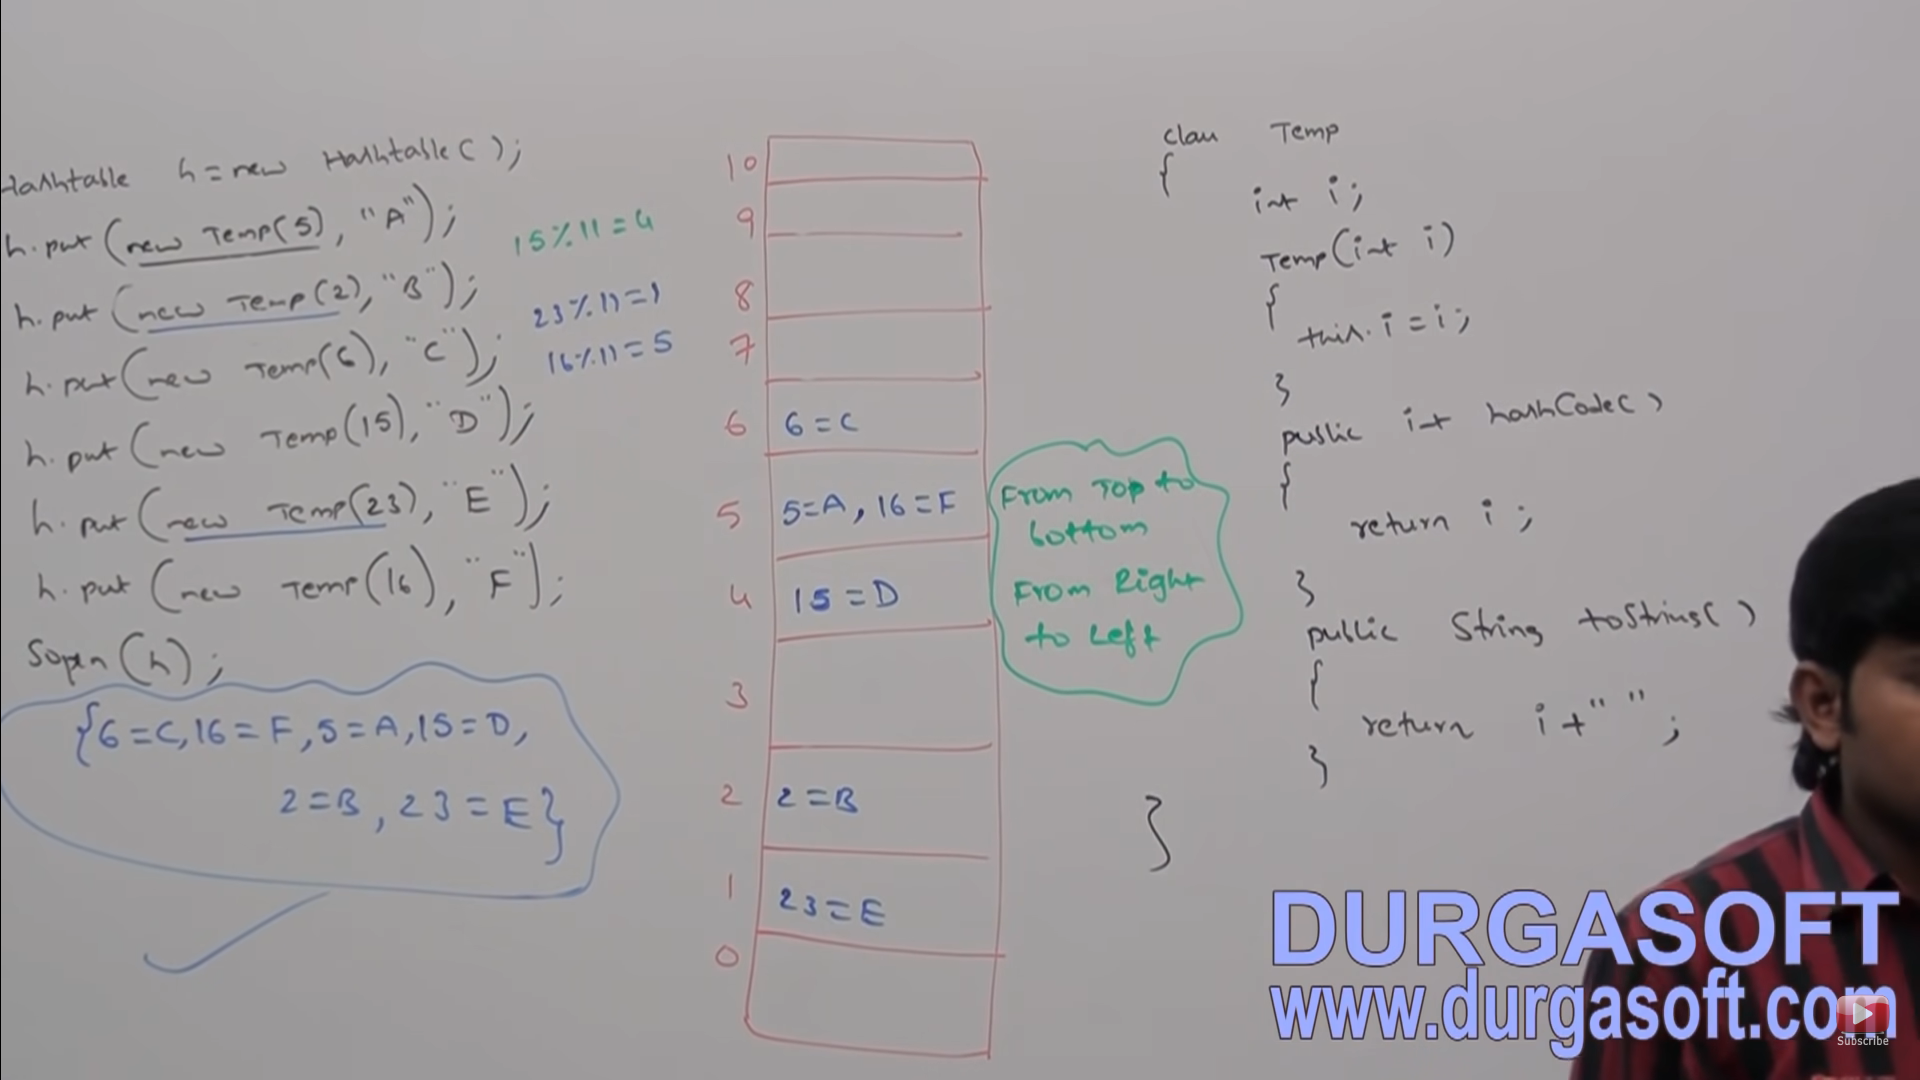 Hashtable h=new Hashtable();
h.put(new Temp(5), "A");
h.put(new Temp(2), "B");
h.put(new Temp(6), "C");
h.put(new Temp(15), "D");
h.put(new Temp(23), "E");
h.put(new Temp(16), "F");
Sopln(h);
{6=C,16=F,5=A,15=D,
2=B,23=E}
15%11=4
23%11=1
16%11=5
10
9
8
7
6 6=C
5 5=A, 16=F
4 15=D
3
2 2=B
1 23=E
0
From Top to
bottom
From Right
to Left
class Temp
{
int i;
Temp(int i)
{
this.i=i;
}
public int hashCode()
{
return i;
}
public String toString()
{
return i+"";
}
}
DURGASOFT
www.durgasoft.com
Subscribe